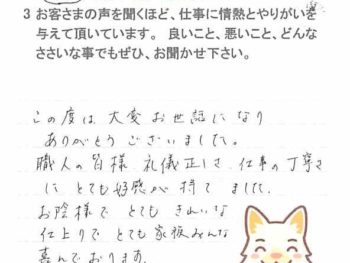 3 お客さまの声を聞くほど、仕事に情熱とやりがいを
与えて頂いています。 良いこと、悪いこと、どんな
ささいな事でもぜひ、お聞かせ下さい。
この度は 大変 お世話に なり
ありがとう ございました。
職人の 皆様 礼儀正しさ 仕事の丁寧さ
に とても 好感が 持て ました。
お陰様で とても きれいな
仕上りで とても 家族みんな
喜んで おります。